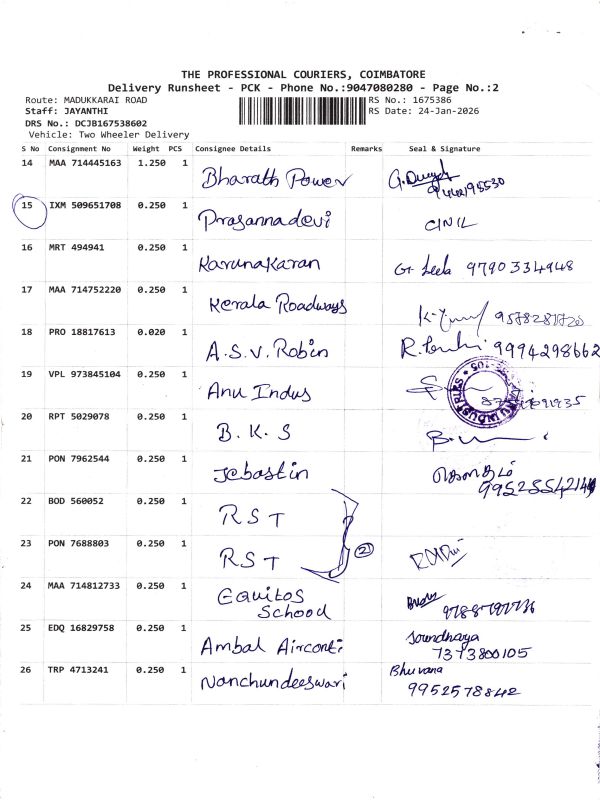 THE PROFESSIONAL COURIERS, COIMBATORE
Delivery Runsheet - PCK - Phone No.:9047080280 - Page No.:2
Route: MADUKKARAI ROAD
Staff: JAYANTHI
DRS No.: DCJB167538602
Vehicle: Two Wheeler Delivery
RS No.: 1675386
RS Date: 24-Jan-2026
S No Consignment No Weight PCS Consignee Details Remarks Seal & Signature
14 MAA 714445163 1.250 1 Bharath Power
15 IXM 509651708 0.250 1 Prasannadevi CINIL
16 MRT 494941 0.250 1 Karunakaran G. Leela 9790334948
17 MAA 714752220 0.250 1 Kerala Roadways
18 PRO 18817613 0.020 1 A.S.V. Robin 9994298662
19 VPL 973845104 0.250 1 Anu Indus
20 RPT 5029078 0.250 1 B.K.S
21 PON 7962544 0.250 1 Jebastin
22 BOD 560052 0.250 1 RST
23 PON 7688803 0.250 1 RST (2)
24 MAA 714812733 0.250 1 Equitos
School
25 EDQ 16829758 0.250 1 Ambal Airconti Soundharya
7373800105
26 TRP 4713241 0.250 1 Nanchundeeswari Bhuvana
9952578842